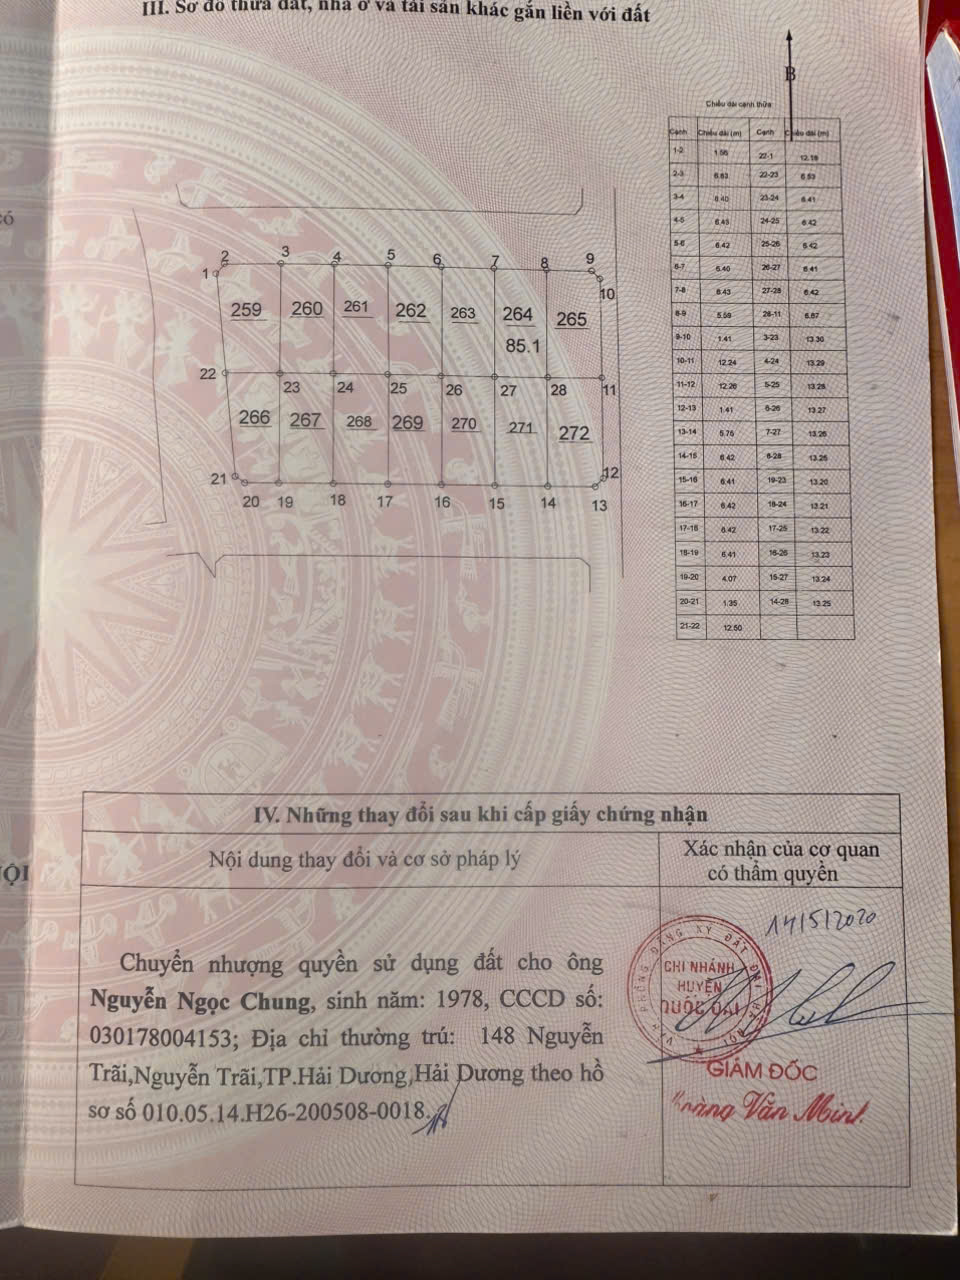 III. Sơ đồ thửa đất, nhà ở và tài sản khác gắn liền với đất
B
Chiều dài cạnh thửa
Cạnh Chiều dài (m) Cạnh Chiều dài (m)
1-2 1.56 22-1 12.18
2-3 6.63 22-23 6.53
3-4 6.40 23-24 6.41
4-5 6.43 24-25 6.42
5-6 6.42 25-26 6.42
6-7 6.40 26-27 6.41
7-8 6.43 27-28 6.42
8-9 5.59 28-11 6.57
9-10 1.41 3-23 13.30
10-11 12.24 4-24 13.29
11-12 12.26 5-25 13.28
12-13 1.41 6-26 13.27
13-14 5.75 7-27 13.26
14-15 6.42 8-28 13.25
15-16 6.41 19-23 13.20
16-17 6.42 18-24 13.21
17-18 6.42 17-25 13.22
18-19 6.41 16-26 13.23
19-20 4.07 15-27 13.24
20-21 1.35 14-28 13.25
21-22 12.50
có
1 2 3 4 5 6 7 8 9
10
259 260 261 262 263 264 265
85.1
22 23 24 25 26 27 28 11
266 267 268 269 270 271 272
21 12
20 19 18 17 16 15 14 13
IV. Những thay đổi sau khi cấp giấy chứng nhận
Nội dung thay đổi và cơ sở pháp lý
Xác nhận của cơ quan
có thẩm quyền
14/5/2020
Chuyển nhượng quyền sử dụng đất cho ông
Nguyễn Ngọc Chung, sinh năm: 1978, CCCD số:
030178004153; Địa chỉ thường trú: 148 Nguyễn
Trãi,Nguyễn Trãi,TP.Hải Dương,Hải Dương theo hồ
sơ số 010.05.14.H26-200508-0018.
VĂN PHÒNG ĐĂNG KÝ ĐẤT ĐAI HÀ NỘI
CHI NHÁNH
HUYỆN
QUỐC OAI
GIÁM ĐỐC
Hoàng Văn Minh